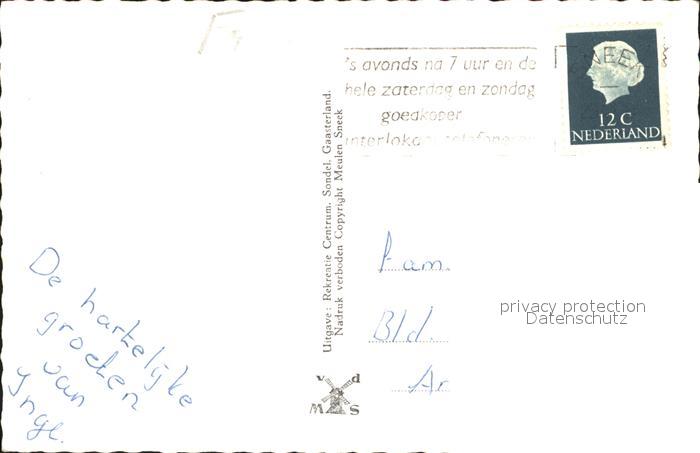 's avonds na 7 uur en de
hele zaterdag en zondag
goedkoper
interlokaal telefoneren
SNEEK
12 C
NEDERLAND
Uitgave: Rekreatie Centrum. Sondel. Gaasterland.
Nadruk verboden Copyright Meulen Sneek
Fam.
Bld.
Ar
privacy protection
Datenschutz
De hartelijke
groeten
van
v d
M S